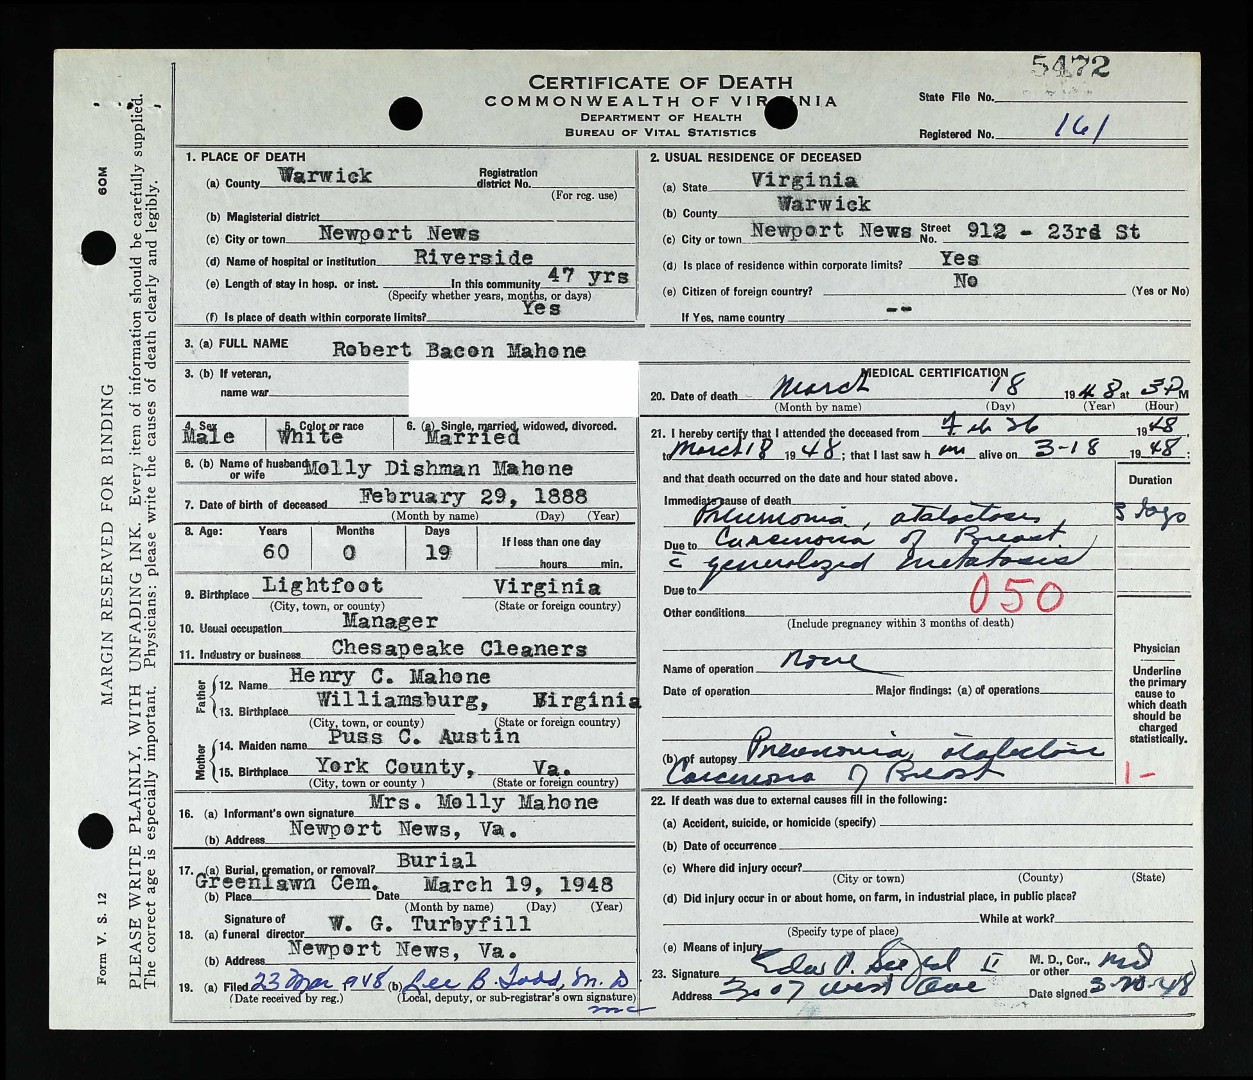 5472
CERTIFICATE OF DEATH
COMMONWEALTH OF VIRGINIA
DEPARTMENT OF HEALTH
BUREAU OF VITAL STATISTICS
State File No.
Registered No. 161
1. PLACE OF DEATH
(a) County Warwick Registration district No.
(For reg. use)
(b) Magisterial district
(c) City or town Newport News
(d) Name of hospital or institution Riverside
(e) Length of stay in hosp. or inst. In this community 47 yrs
(Specify whether years, months, or days)
(f) Is place of death within corporate limits? Yes
2. USUAL RESIDENCE OF DECEASED
(a) State Virginia
(b) County Warwick
(c) City or town Newport News Street No. 912 - 23rd St
(d) Is place of residence within corporate limits? Yes
(e) Citizen of foreign country? No (Yes or No)
If Yes, name country --
3. (a) FULL NAME Robert Bacon Mahone
3. (b) If veteran,
name war
4. Sex Male 5. Color or race White 6. (a) Single, married, widowed, divorced. Married
6. (b) Name of husband or wife Molly Dishman Mahone
7. Date of birth of deceased February 29, 1888
(Month by name) (Day) (Year)
8. Age: Years Months Days If less than one day
60 0 19 hours min.
9. Birthplace Lightfoot Virginia
(City, town, or county) (State or foreign country)
10. Usual occupation Manager
11. Industry or business Chesapeake Cleaners
Father
12. Name Henry C. Mahone
13. Birthplace Williamsburg, Virginia
(City, town, or county) (State or foreign country)
Mother
14. Maiden name Puss C. Austin
15. Birthplace York County, Va.
(City, town, or county ) (State or foreign country)
16. (a) Informant's own signature Mrs. Molly Mahone
(b) Address Newport News, Va.
17. (a) Burial, cremation, or removal? Burial
(b) Place Greenlawn Cem. Date March 19, 1948
(Month by name) (Day) (Year)
18. (a) Signature of funeral director W. G. Turbyfill
(b) Address Newport News, Va.
19. (a) Filed 23 Mar 1948 (b) Lee B. Todd, M. D
(Date received by reg.) (Local, deputy, or sub-registrar's own signature)
mc
MEDICAL CERTIFICATION
20. Date of death March 18 1948 at 3 P M
(Month by name) (Day) (Year) (Hour)
21. I hereby certify that I attended the deceased from Feb 26 1948,
to March 18 1948; that I last saw him alive on 3-18 1948;
and that death occurred on the date and hour stated above. Duration
Immediate cause of death
Pneumonia, atalectasis, 3 days
Due to Carcinoma of Breast
c̄ generalized metatasis
Due to
050
Other conditions
(Include pregnancy within 3 months of death)
Name of operation None
Date of operation Major findings: (a) of operations
(b) of autopsy Pneumonia, atalectasis
Carcinoma of Breast
Physician
Underline the primary cause to which death should be charged statistically.
1-
22. If death was due to external causes fill in the following:
(a) Accident, suicide, or homicide (specify)
(b) Date of occurrence
(c) Where did injury occur?
(City or town) (County) (State)
(d) Did injury occur in or about home, on farm, in industrial place, in public place?
While at work?
(Specify type of place)
(e) Means of injury
23. Signature II M. D., Cor., or other MD
Address 3007 West Ave Date signed 3-20-48
MARGIN RESERVED FOR BINDING
PLEASE WRITE PLAINLY, WITH UNFADING INK. Every item of information should be carefully supplied.
The correct age is especially important. Physicians: please write the causes of death clearly and legibly.
Form V. S. 12
60M